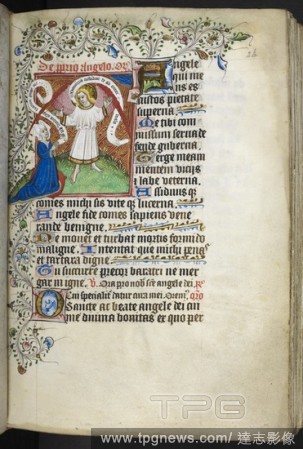 De p͞prio Angelo. Or͞o
Angele
qui me
us es
custos pietate
superna.
Me tibi com
missum serua de
fende guberna.
Terge meam
mentem vicijs
⁊ labe veterna.
Assiduus q͛
comes michi sis vite q͛ lucerna.
Angele fide comes sapiens vene
rande benigne.
Me mouet et turbat mortis formido
maligne. Intentat que michi pena͛
et tartara digne
Tu succurre precor baratri ne mer
gar in igne. v͛. Ora pro nob͛ sc͞e angele dei. R͛
Sancte ac beate angele dei cui
me diuina bonitas ex quo per
TPG
www.tpgnews.com/ 達志影像